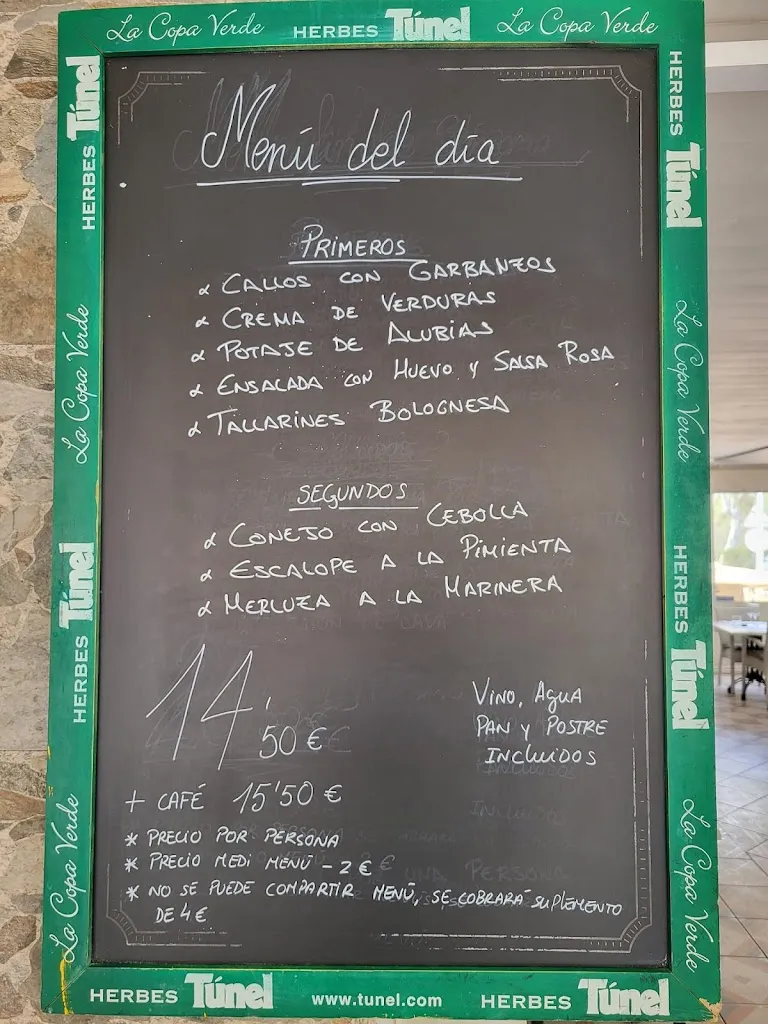 La Copa Verde HERBES Túnel La Copa Verde
HERBES Túnel
La Copa Verde
HERBES Túnel
La Copa Verde
Menú del día
PRIMEROS
CALLOS CON GARBANZOS
CREMA DE VERDURAS
POTAJE DE ALUBIAS
ENSALADA CON HUEVO Y SALSA ROSA
TALLARINES BOLOGNESA
SEGUNDOS
CONEJO CON CEBOLLA
ESCALOPE A LA PIMIENTA
MERLUZA A LA MARINERA
14'50 €
VINO, AGUA
PAN Y POSTRE
INCLUIDOS
+ CAFÉ 15'50 €
* PRECIO POR PERSONA
* PRECIO MEDI MENÚ - 2 €
* NO SE PUEDE COMPARTIR MENÚ, SE COBRARÁ SUPLEMENTO
DE 4 €
HERBES Túnel
La Copa Verde
HERBES Túnel
La Copa Verde
HERBES Túnel www.tunel.com HERBES Túnel